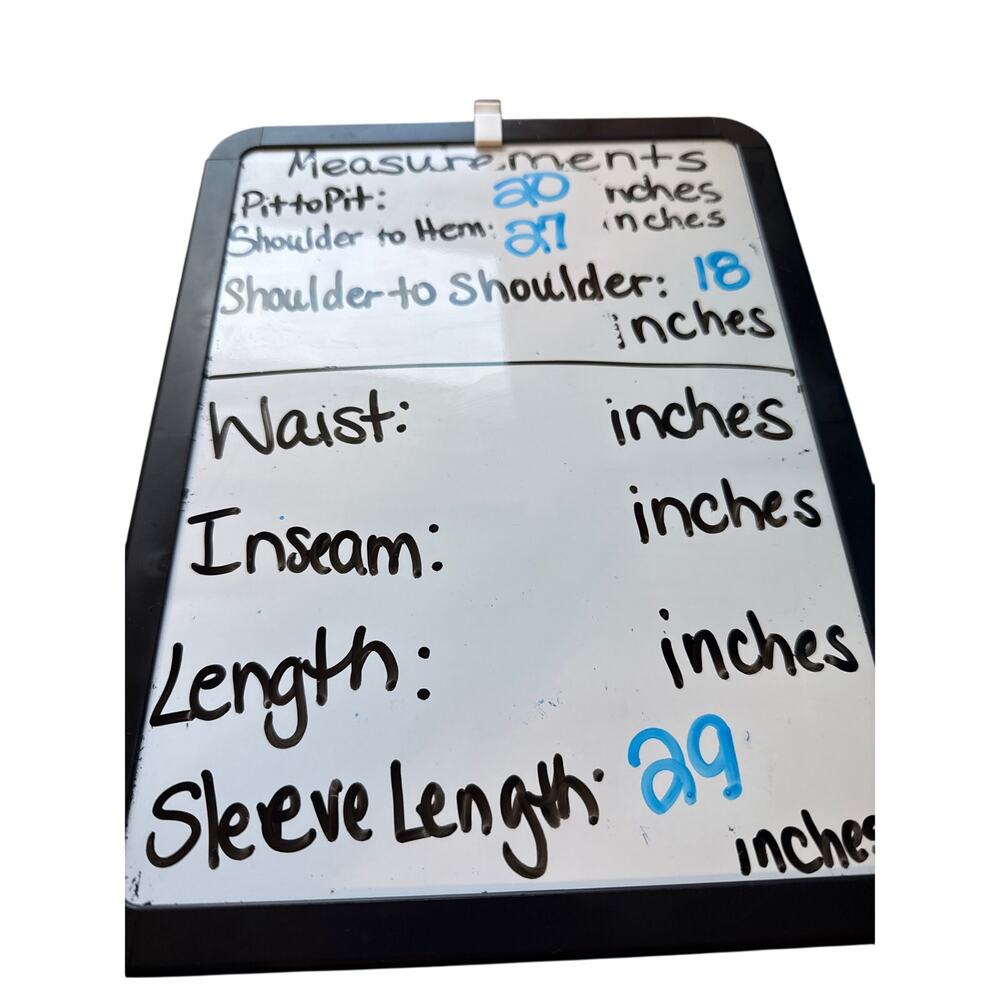 Measurements
Pit to Pit: 20 inches
Shoulder to Hem: 27 inches
Shoulder to Shoulder: 18
inches
Waist: inches
Inseam: inches
Length: inches
Sleeve Length: 29
inches